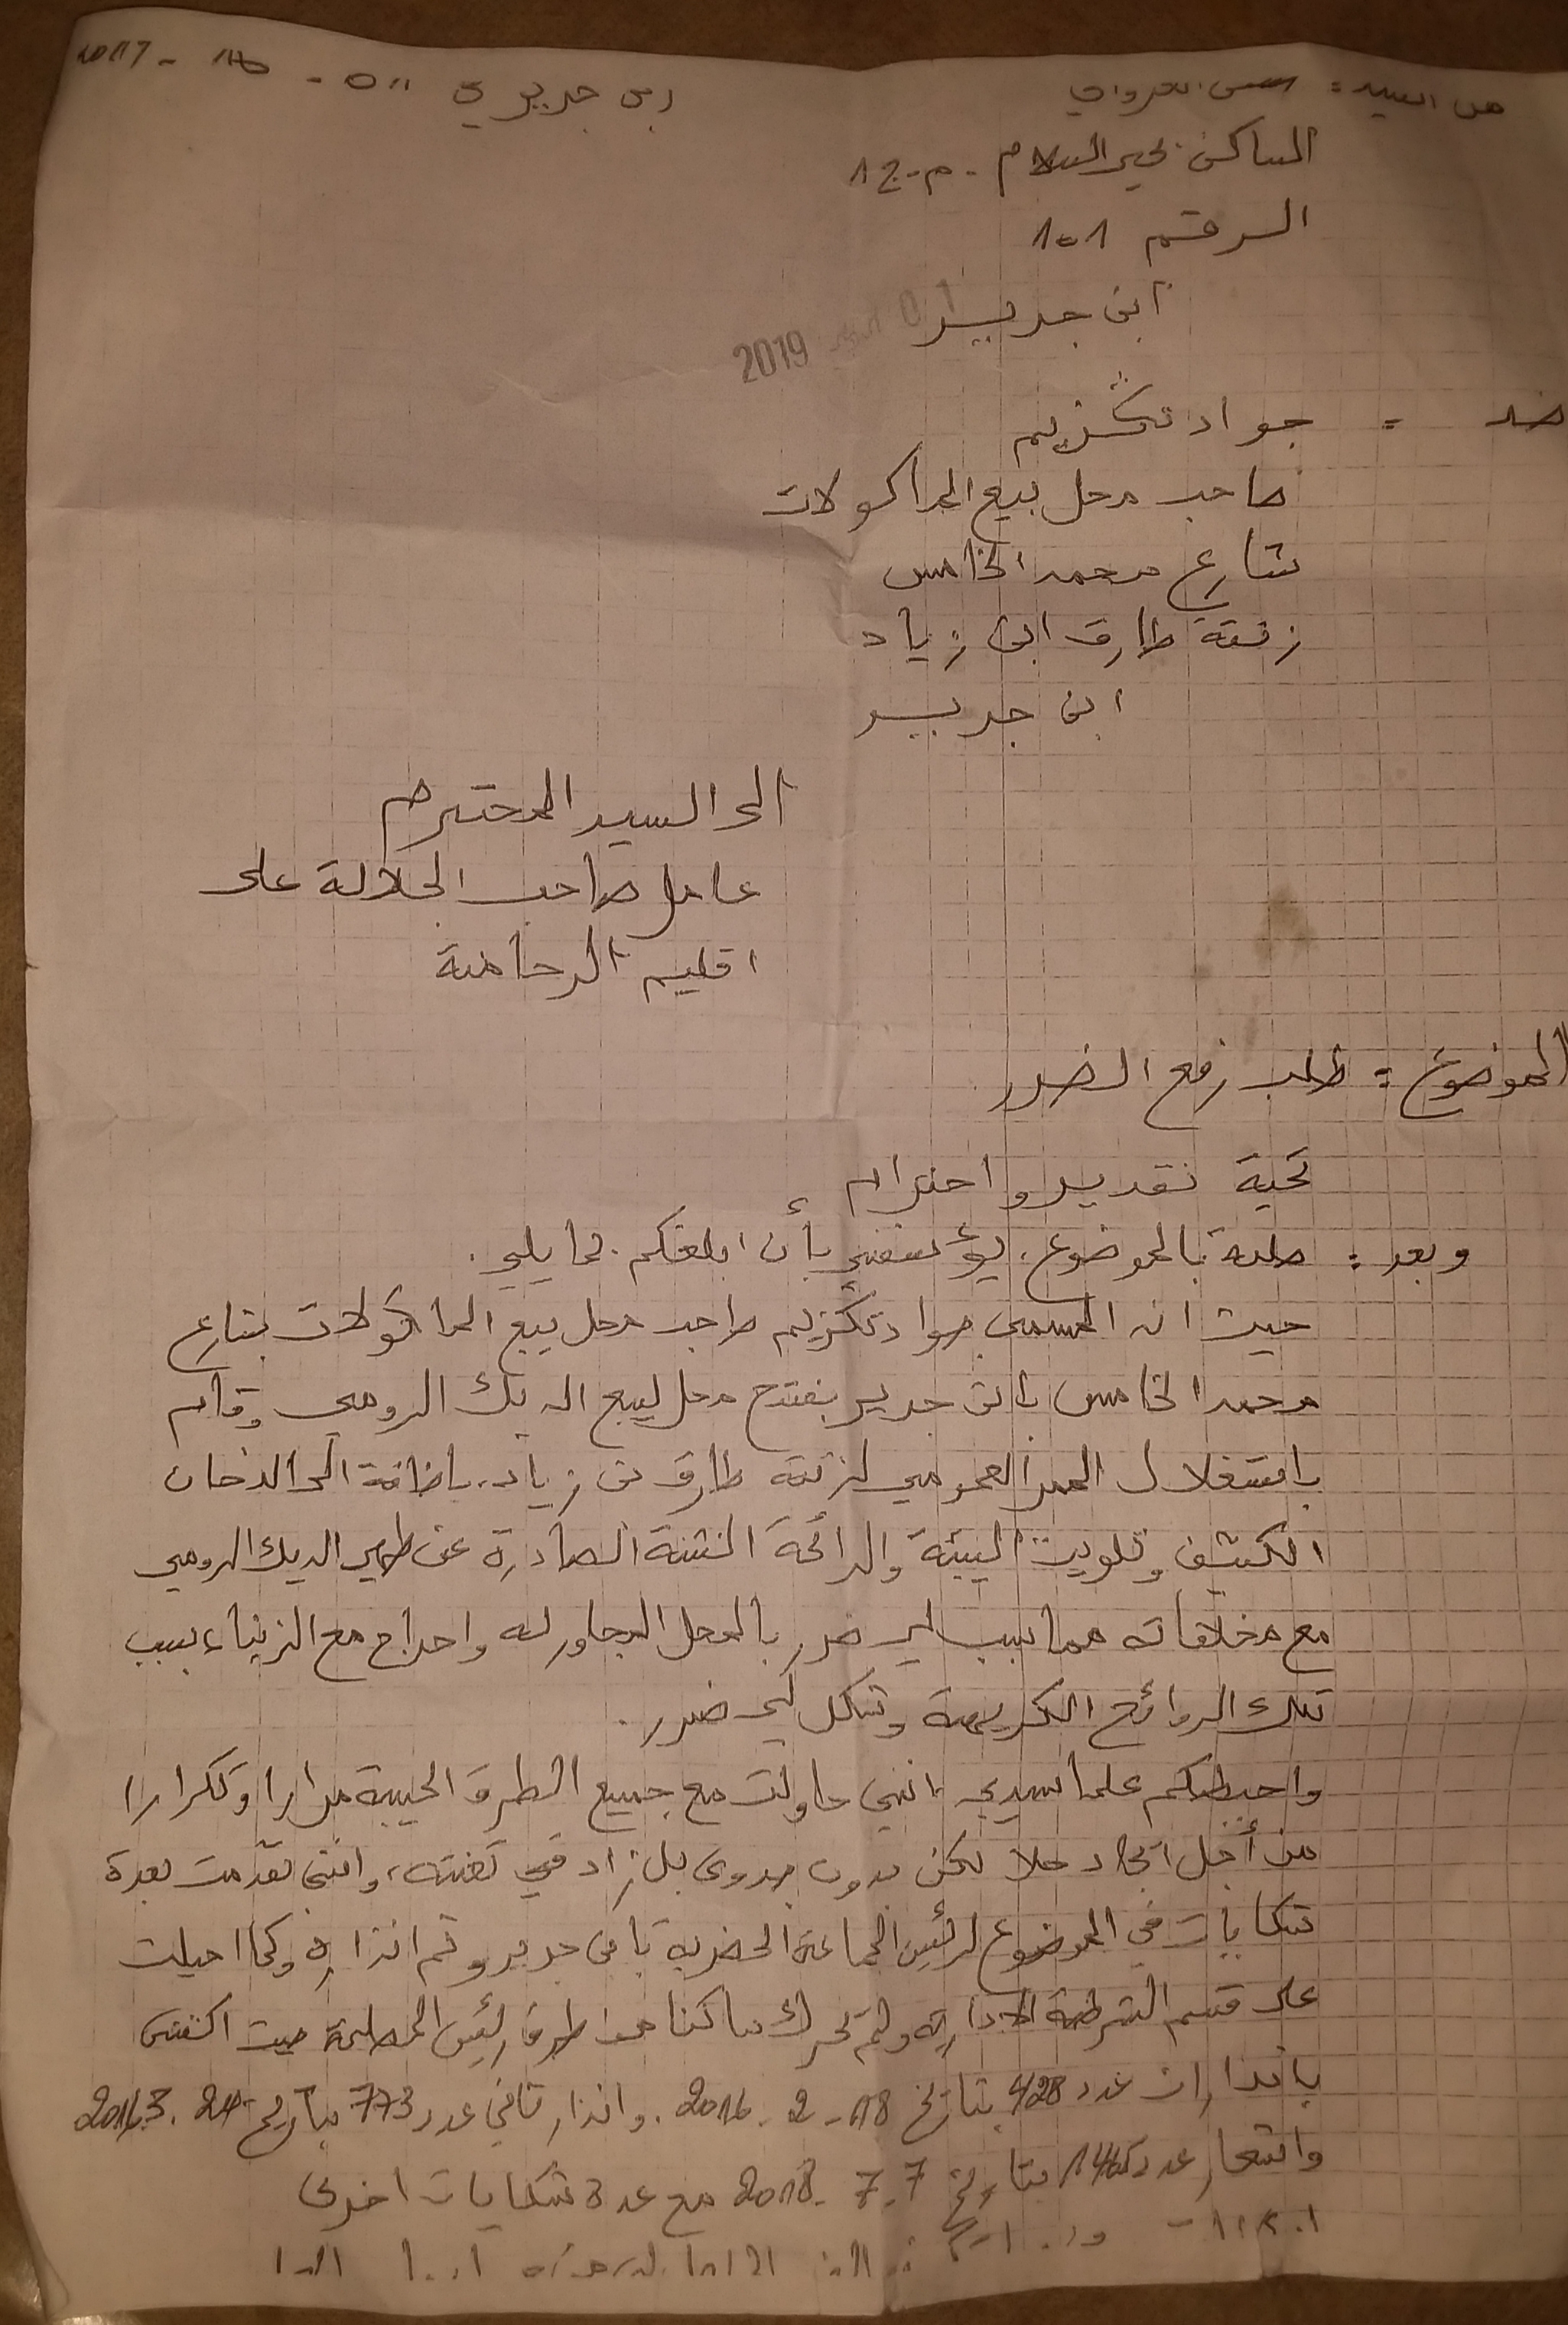 من السيد : حسن القرواني
ابن جرير في
الساكن بحي السلام . م . ج 1
الرقم 101
ابن جرير
01 2019
ضد = جواد تڭزيم
صاحب محل بيع المأكولات
شارع محمد الخامس
زنقة طارق ابن زياد
ابن جرير
الى السيد المحترم
عامل صاحب الجلالة على
اقليم الرحامنة
الموضوع : طلب رفع الضرر
تحية تقدير واحترام
وبعد : صلة بالموضوع، يؤسفني بأن ابلغكم بما يلي .
حيث ان المسمى جواد تڭزيم صاحب محل بيع المأكولات بشارع
محمد الخامس بابن جرير بفتح محل لبيع الديك الرومي وقام
باستغلال الممر العمومي لزنقة طارق بن زياد، باضافة الى الدخان
الكثيف وتلويث البيئة والرائحة النتنة الصادرة عن طهي الديك الرومي
مع مخلفاته مما سبب لي ضرر بالمحل المجاور له واحراج مع الزبناء بسبب
تلك الروائح الكريهة وتشكل لي ضرر .
واحيطكم علما سيدي انني حاولت مع جميع الطرق الحبية مرارا وتكرارا
من أجل ايجاد حلا لكن بدون جدوى بل زاد في تعنته، وانني تقدمت بعدة
شكايات في الموضوع لرئيس الجماعة الحضرية بابن جرير وتم انذاره وكما احيلت
على قسم الشرطة الادارية ولم تحرك ساكنا من طرف رئيس المصلحة حيث اكتفى
بانذارات عدد 428 بتاريخ 18 - 2 - 2016 . وانذار ثاني عدد 773 بتاريخ
واشعار عدد 1465 بتاريخ 7 - 7 - 2018 مع عدة شكايات اخرى